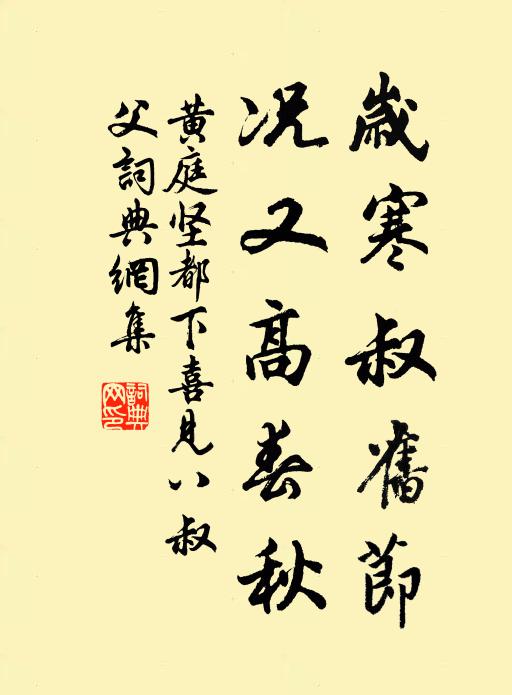 歲寒叔舊節
况又高春秋
黄庭坚都下喜見八叔
父詞典網集
詞典网印